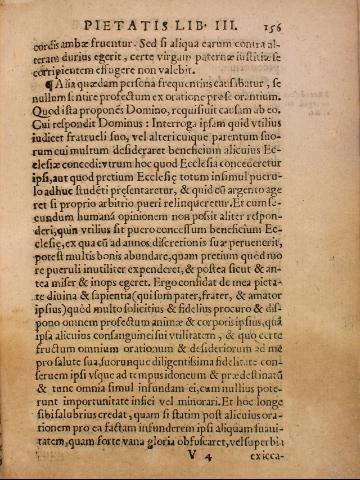 PIETATIS LIB. III. 156
cordis ambæ fruentur. Sed si aliqua earum contra al-
teram durius egerit, certe virgam paternæ iustitiæ se
corripientem effugere non valebit.
¶ Alia quædam persona frequentius causabatur, se
nullum sentire profectum ex oratione pro se orantium.
Quod ista proponēs Domino, requisiuit causam ab eo.
Cui respondit Dominus: Interroga ipsam quid vtilius
iudicet fratrueli suo, vel alteri cuique parentum suo-
rum cui multum desideraret beneficium alicuius Ec-
clesiæ concedi: vtrum hoc quod Ecclesia concederetur
ipsi, aut quod pretium Ecclesię totum insimul pueru-
lo adhuc studēti pręsentaretur, & quid cū argento age
ret si proprio arbitrio pueri relinqueretur. Et cum se-
cundum humanā opinionem non possit aliter respon-
deri, quin vtilius sit puero concessum beneficium Ec-
clesię, ex qua cū ad annos discretionis suæ peruenerit,
potest multis bonis abundare, quam pretium quod mo
re puerili inutiliter expenderet, & postea sicut & an-
tea miser & inops egeret. Ergo confidat de mea pieta-
te diuina & sapientia (qui sum pater, frater, & amator
ipsius) quòd multo solicitius & fidelius procuro & dis-
pono omnem profectum animæ & corporis ipsius, quā
ipsa alicuius consanguinei sui vtilitatem, & quo certe
fructum omnium orationum & desideriorum ad me
pro salute sua, suorunque diligentissima fidelitate con-
seruem ipsi vsque ad tempus idoneum & prædestinatū
& tunc omnia simul infundam ei, cum nullius pote-
runt importunitate infici vel minorari. Et hoc longe
sibi salubrius credat, quam si statim post alicuius ora-
tionem pro ea factam infunderem ipsi aliquam suaui-
tatem, quam forte vana gloria obfuscaret, vel superbia
V 4 exicca-